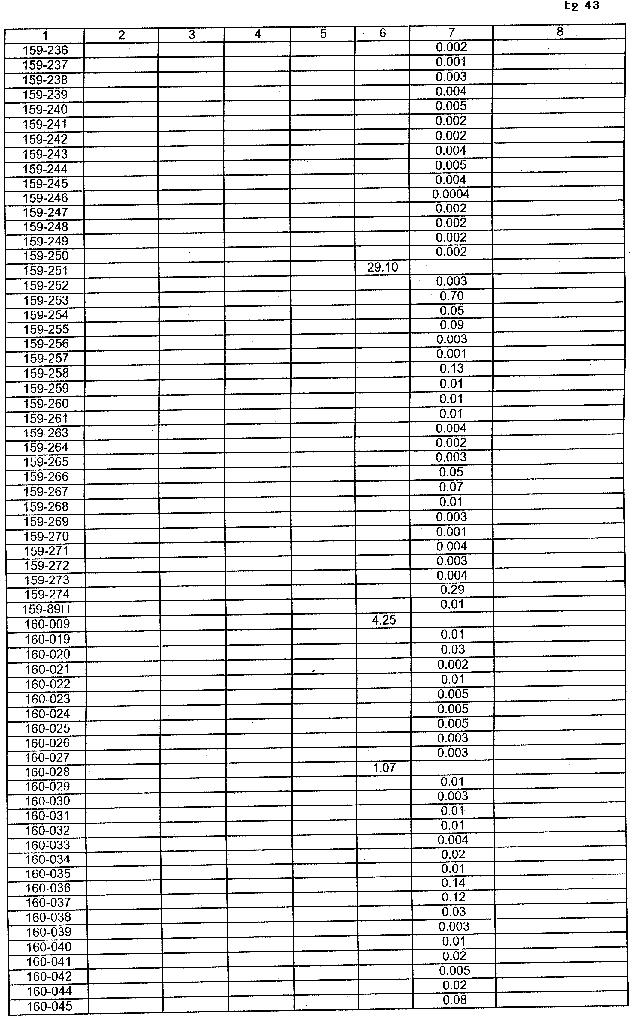 էջ 43
1 2 3 4 5 6 7 8
159-236 0.002
159-237 0.001
159-238 0.003
159-239 0.004
159-240 0.005
159-241 0.002
159-242 0.002
159-243 0.004
159-244 0.005
159-245 0.004
159-246 0.0004
159-247 0.002
159-248 0.002
159-249 0.002
159-250 0.002
159-251 29.10
159-252 0.003
159-253 0.70
159-254 0.05
159-255 0.09
159-256 0.003
159-257 0.001
159-258 0.13
159-259 0.01
159-260 0.01
159-261 0.01
159-263 0.004
159-264 0.002
159-265 0.003
159-266 0.05
159-267 0.07
159-268 0.01
159-269 0.003
159-270 0.001
159-271 0.004
159-272 0.003
159-273 0.004
159-274 0.29
159-89П 0.01
160-009 4.25
160-019 0.01
160-020 0.03
160-021 0.002
160-022 0.01
160-023 0.005
160-024 0.005
160-025 0.005
160-026 0.003
160-027 0.003
160-028 1.07
160-029 0.01
160-030 0.003
160-031 0.01
160-032 0.01
160-033 0.004
160-034 0.02
160-035 0.01
160-036 0.14
160-037 0.12
160-038 0.03
160-039 0.003
160-040 0.01
160-041 0.02
160-042 0.005
160-044 0.02
160-045 0.08